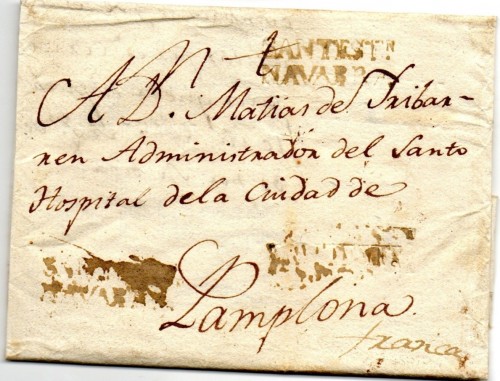 SANTEST.
NAVARR.
A D.n Matias de Iribar-
ren Administrador del Santo
Hospital de la Ciudad de
NAVAR
Pamplona.
franca